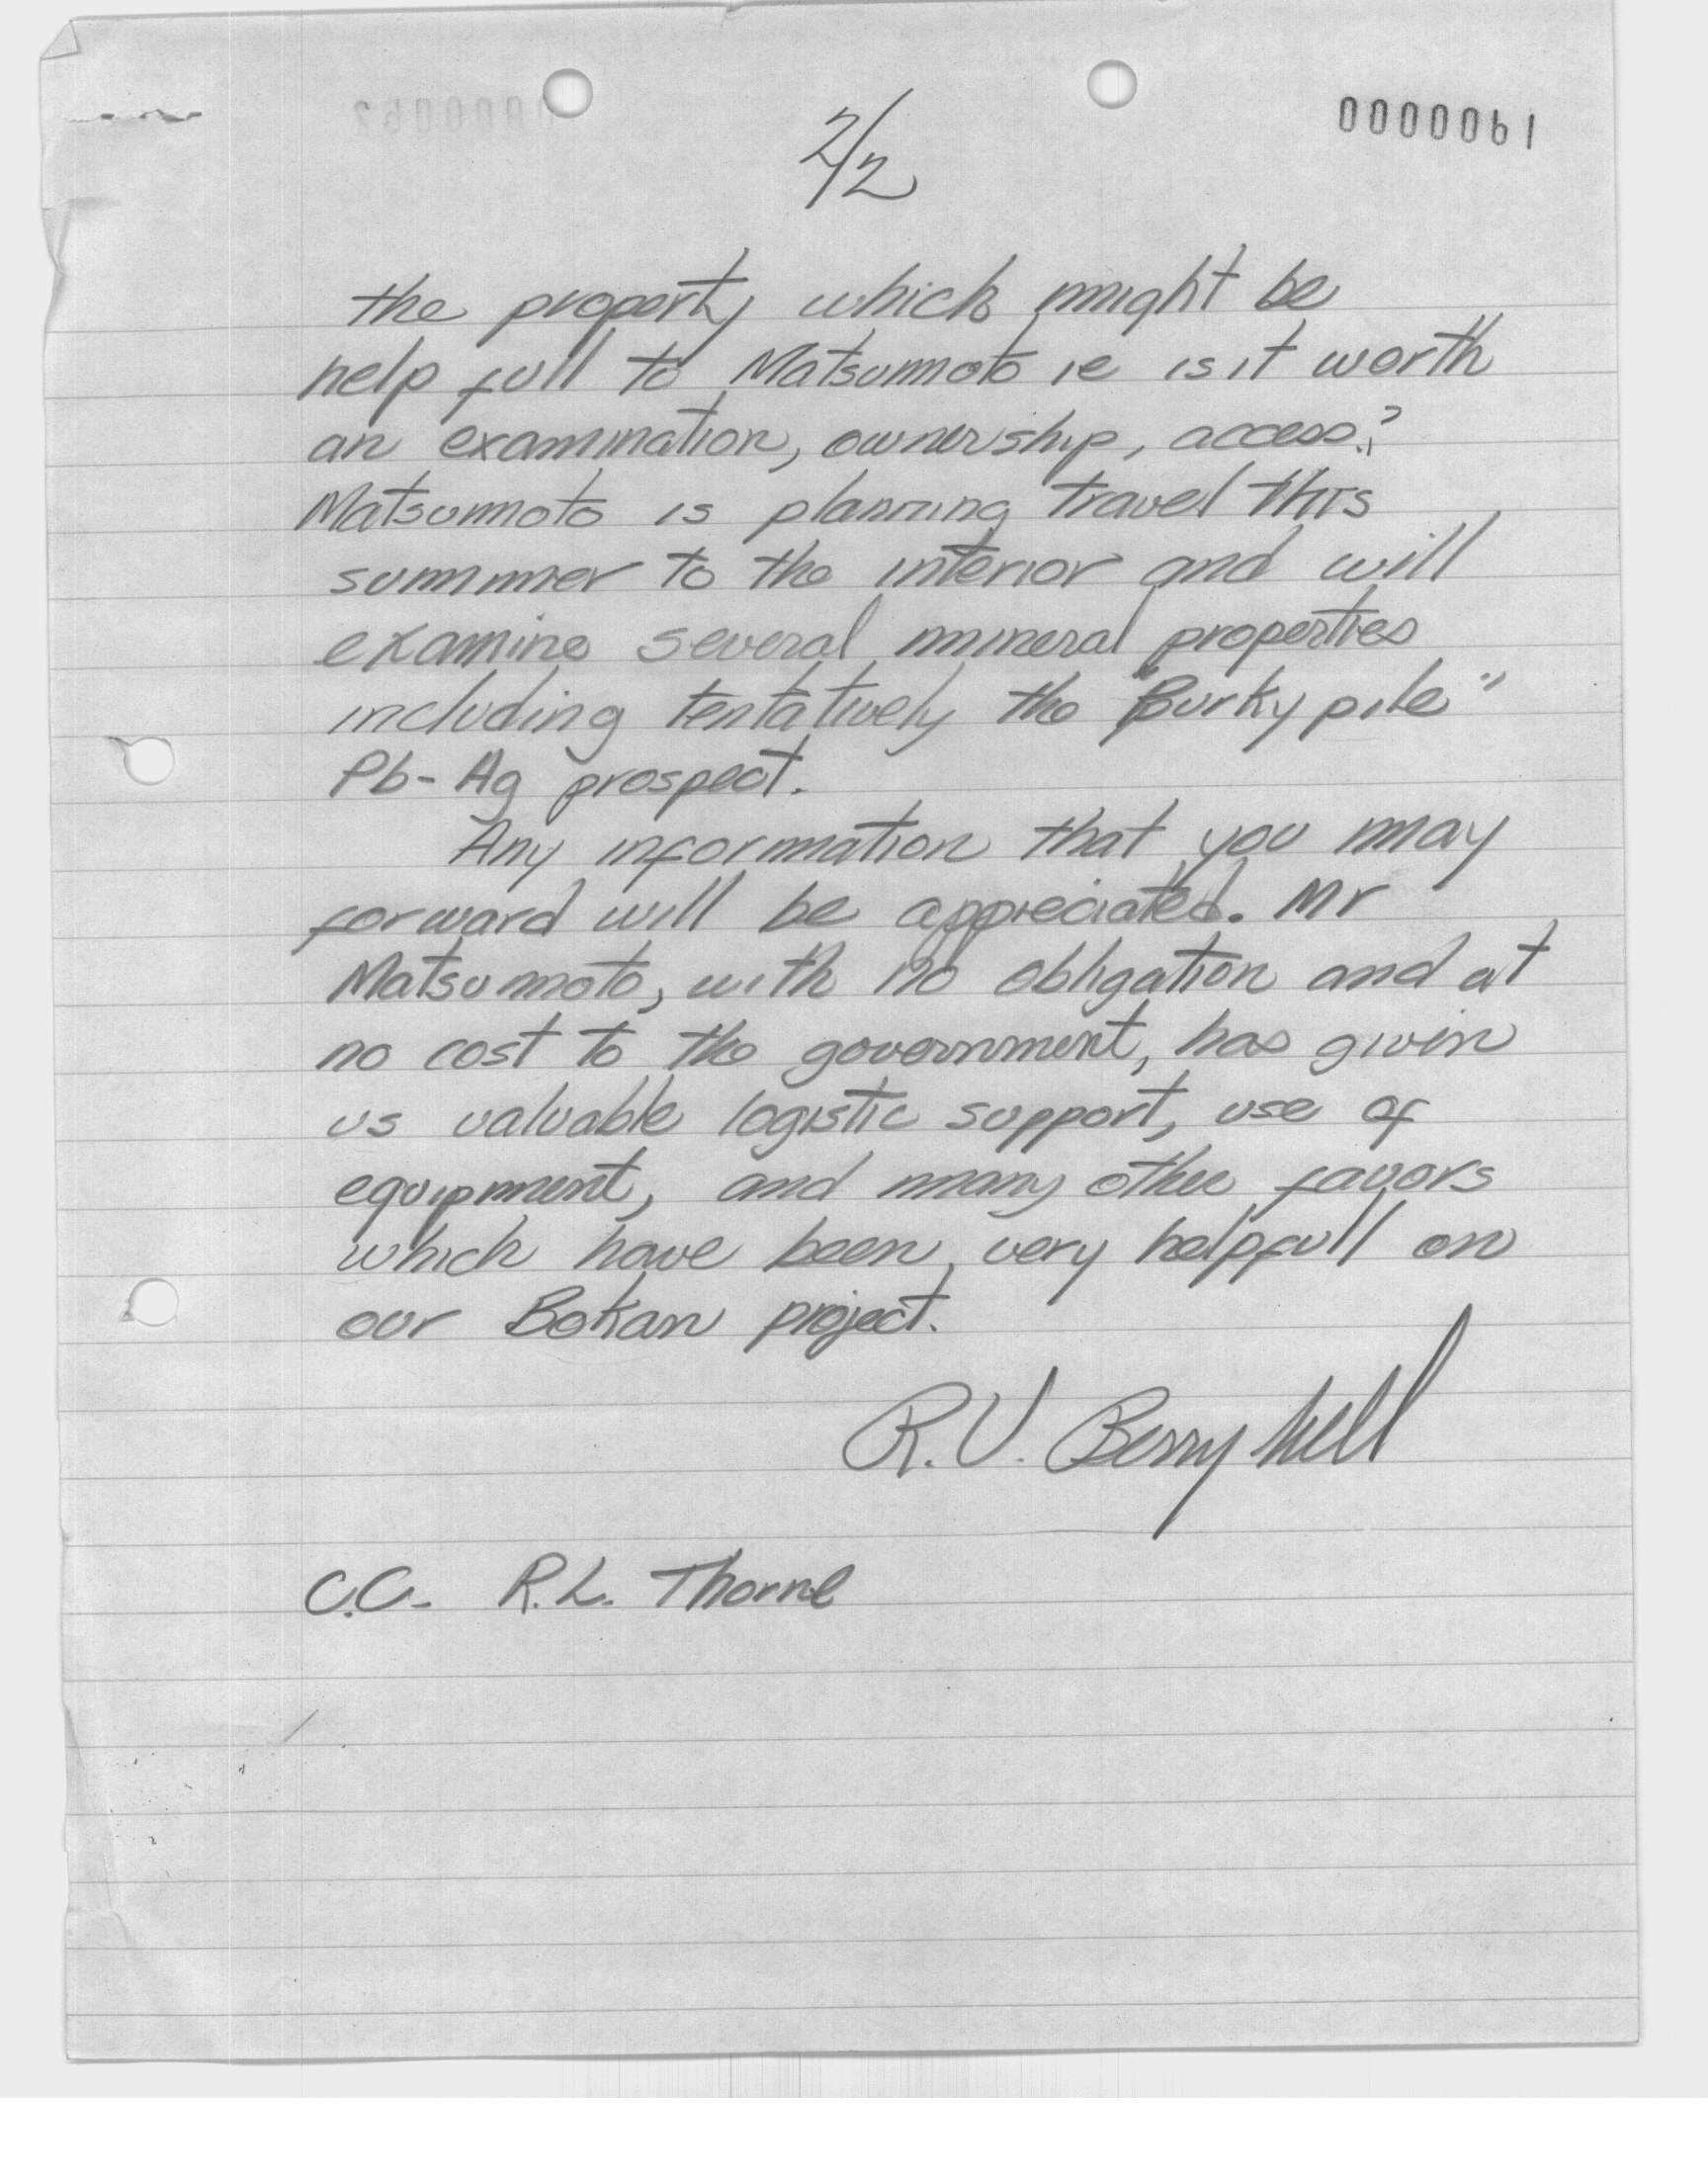 0000061
2/2
the property which might be
help full to Matsumoto ie is it worth
an examination, ownership, access?
Matsumoto is planning travel this
summer to the interior and will
examine several mineral properties
including tentatively the "Burky pile"
Pb-Ag prospect.
Any information that you may
forward will be appreciated. Mr
Matsumoto, with no obligation and at
no cost to the government, has given
us valuable logistic support, use of
equipment, and many other favors
which have been very helpfull on
our Bokan project.
R.V. Berryhill
C.C. R.L. Thorne